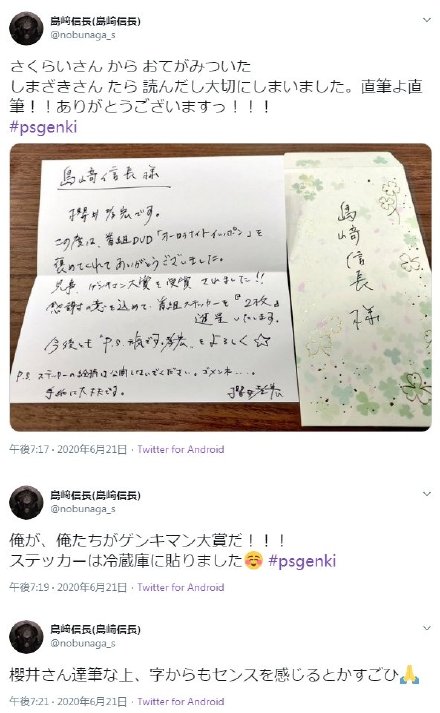 島﨑信長(島﨑信長)
@nobunaga_s
さくらいさん から おてがみついた
しまざきさん たら 読んだし大切にしまいました。直筆よ直
筆！！ありがとうございますっ！！！
#psgenki
島﨑信長 様
櫻井孝宏です。
この度は、番組DVD「オーロラナイトインポン」を
褒めてくれてありがとうございました。
見事 ゲンキマン大賞を受賞 されました!!
感謝の意を込めて、番組ステッカーを『2枚』
進呈いたします。
今後とも P.S.元気です。孝宏 をよろしく☆
P.S. ステッカーの絵柄は公開しないでください。ゴメンネ…。
手紙は大丈夫です。
櫻井孝宏
島﨑信長 様
午後7:17 · 2020年6月21日 · Twitter for Android
島﨑信長(島﨑信長)
@nobunaga_s
俺が、俺たちがゲンキマン大賞だ！！！
ステッカーは冷蔵庫に貼りました☺️ #psgenki
午後7:19 · 2020年6月21日 · Twitter for Android
島﨑信長(島﨑信長)
@nobunaga_s
櫻井さん達筆な上、字からもセンスを感じるとかすごひ🙏
午後7:21 · 2020年6月21日 · Twitter for Android